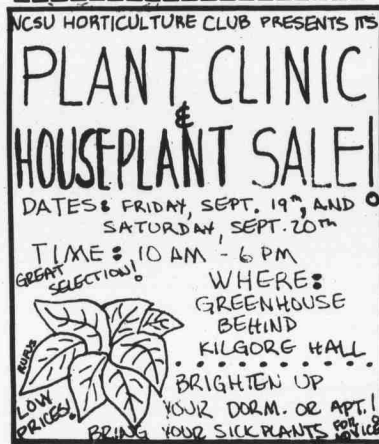 NCSU HORTICULTURE CLUB PRESENTS ITS
PLANT CLINIC
&
HOUSEPLANT SALE!
DATES: FRIDAY, SEPT. 19TH, AND
SATURDAY, SEPT. 20TH
TIME: 10 AM - 6 PM
GREAT
SELECTION!
WHERE:
GREENHOUSE
BEHIND
KILGORE HALL
LOW
PRICES!
BRIGHTEN UP
YOUR DORM. OR APT.!
BRING YOUR SICK PLANTS FOR